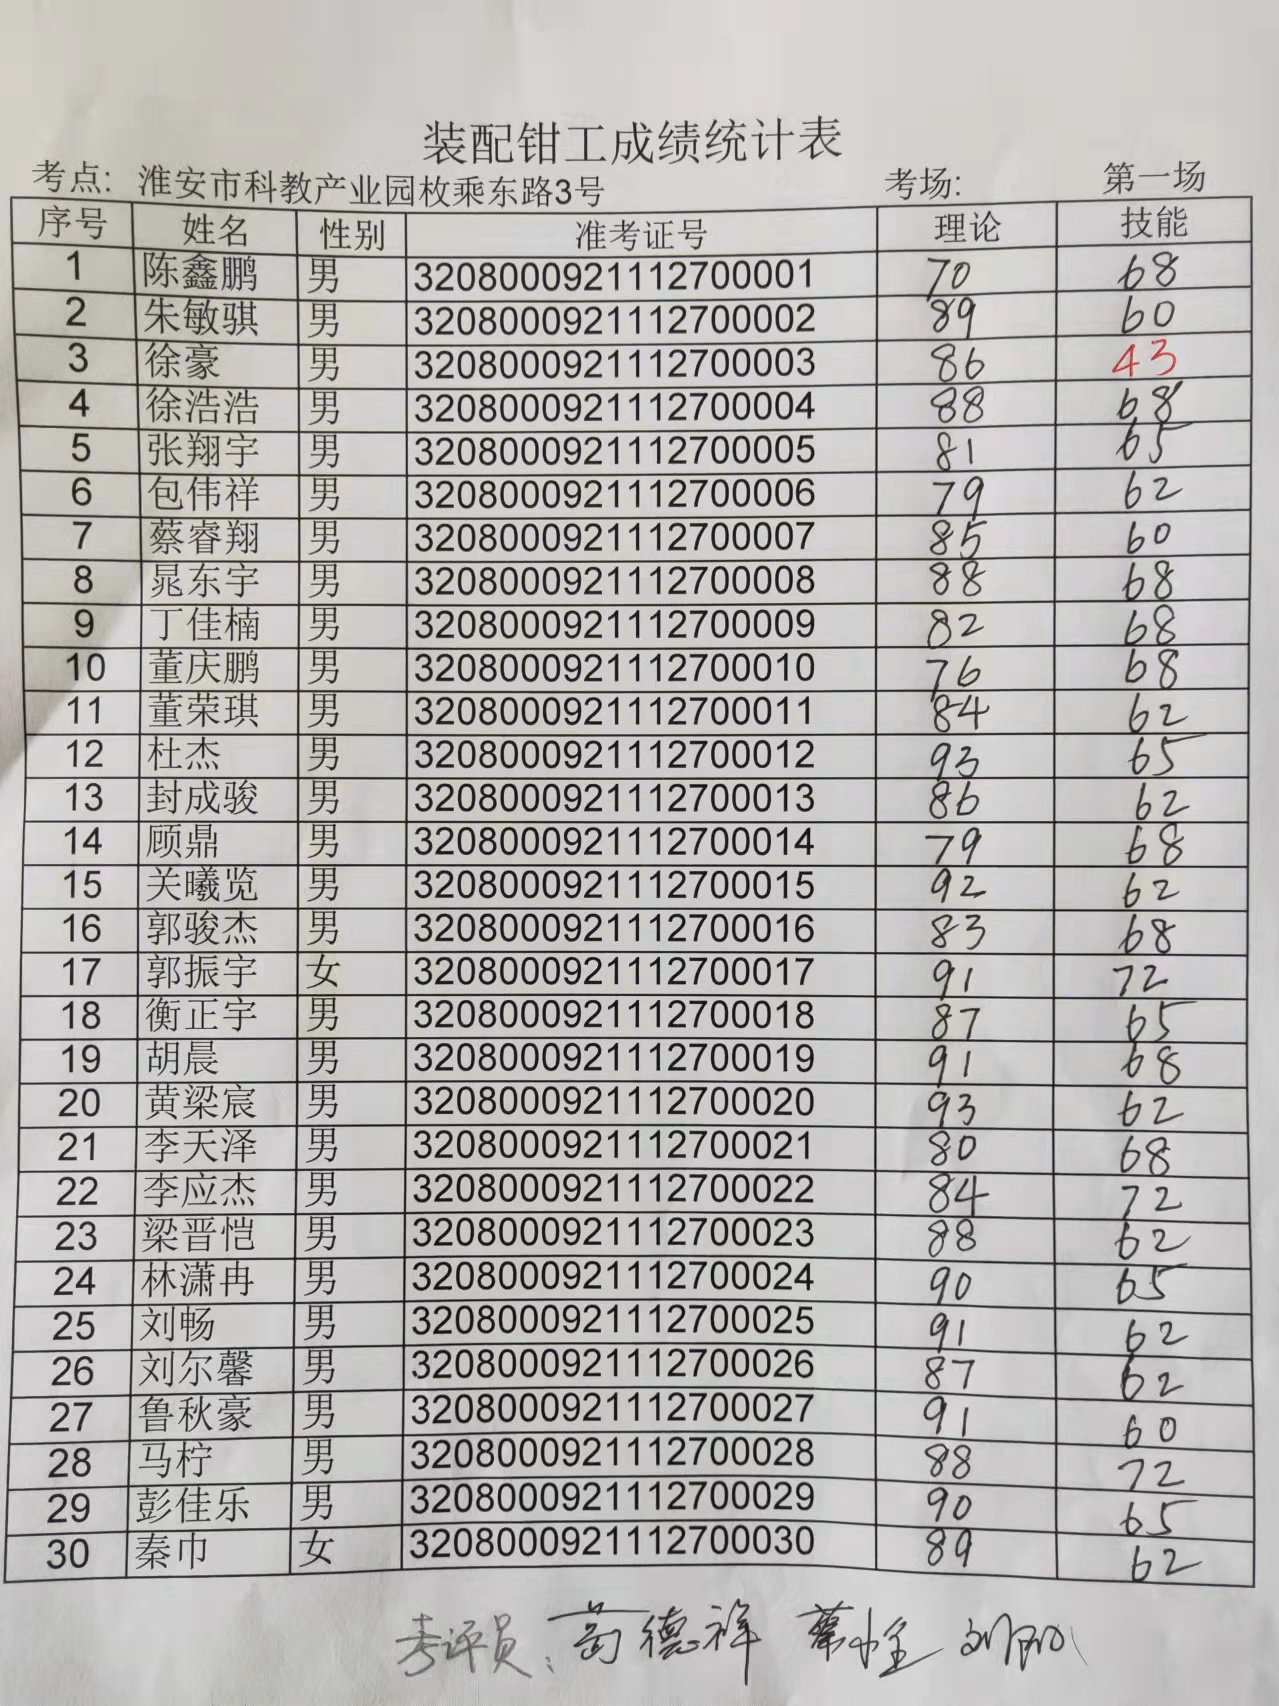 装配钳工成绩统计表
考点: 淮安市科教产业园枚乘东路3号 考场: 第一场
序号 姓名 性别 准考证号 理论 技能
1 陈鑫鹏 男 3208000921112700001 70 68
2 朱敏骐 男 3208000921112700002 89 60
3 徐豪 男 3208000921112700003 86 43
4 徐浩浩 男 3208000921112700004 88 68
5 张翔宇 男 3208000921112700005 81 65
6 包伟祥 男 3208000921112700006 79 62
7 蔡睿翔 男 3208000921112700007 85 60
8 晁东宇 男 3208000921112700008 88 68
9 丁佳楠 男 3208000921112700009 82 68
10 董庆鹏 男 3208000921112700010 76 68
11 董荣琪 男 3208000921112700011 84 62
12 杜杰 男 3208000921112700012 93 65
13 封成骏 男 3208000921112700013 86 62
14 顾鼎 男 3208000921112700014 79 68
15 关曦览 男 3208000921112700015 92 62
16 郭骏杰 男 3208000921112700016 83 68
17 郭振宇 女 3208000921112700017 91 72
18 衡正宇 男 3208000921112700018 87 65
19 胡晨 男 3208000921112700019 91 68
20 黄梁宸 男 3208000921112700020 93 62
21 李天泽 男 3208000921112700021 80 68
22 李应杰 男 3208000921112700022 84 72
23 梁晋恺 男 3208000921112700023 88 62
24 林潇冉 男 3208000921112700024 90 65
25 刘畅 男 3208000921112700025 91 62
26 刘尔馨 男 3208000921112700026 87 62
27 鲁秋豪 男 3208000921112700027 91 60
28 马柠 男 3208000921112700028 88 72
29 彭佳乐 男 3208000921112700029 90 65
30 秦巾 女 3208000921112700030 89 62
考评员: 德祥 蔡 刘